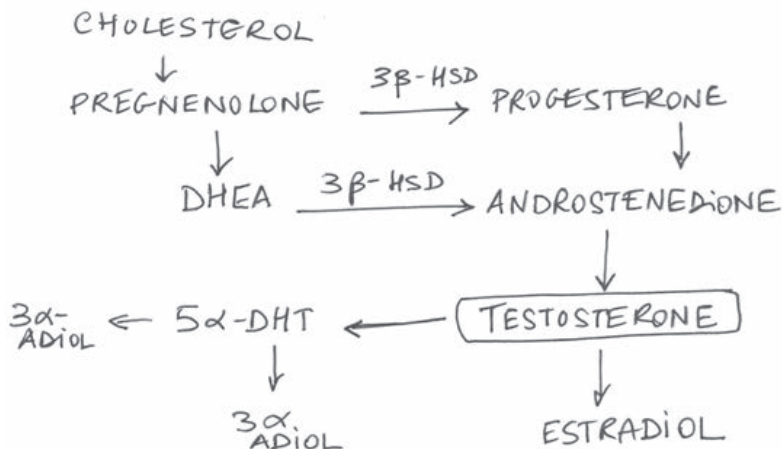 CHOLESTEROL
PREGNENOLONE 3β-HSD PROGESTERONE
DHEA 3β-HSD ANDROSTENEDiONE
3α-ADiOL 5α-DHT TESTOSTERONE
3α ADiOL ESTRADiOL